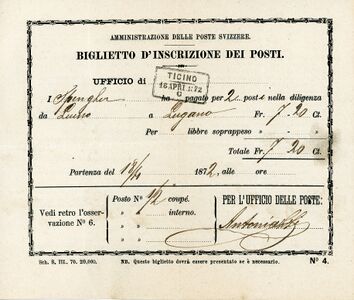 AMMINISTRAZIONE DELLE POSTE SVIZZERE.
BIGLIETTO D'INSCRIZIONE DEI POSTI.
UFFICIO di
TICINO
18 APRI 1872
C
I Spengler ha pagato per 2 posti nella diligenza
da Luino a Lugano Fr. 7. 20 Ct.
Per libbre soprappeso » »
Totale Fr. 7 20 Ct.
Partenza del 18/4 1872, alle ore
Vedi retro l'osser-
vazione N° 6.
Posto N° 1/2 coupé.
» » interno.
» »
PER L'UFFICIO DELLE POSTE:
Sch. S. III. 70. 20,000.
NB. Questo biglietto dovrà essere presentato se è necessario.
N° 4.